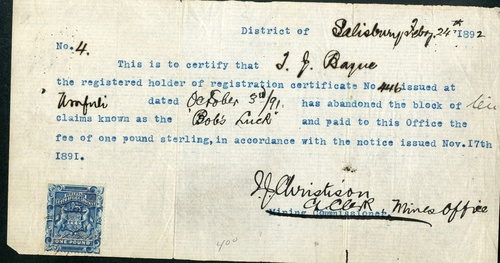 District of Salisbury Feby 24th 1892
No. 4.
This is to certify that T. J. Bague
the registered holder of registration certificate No. 446 issued at
Umfuli dated October 3rd/91. has abandoned the block of
claims known as the "Bob's Luck" and paid to this Office the
fee of one pound sterling, in accordance with the notice issued Nov. 17th
1891.
Christison
Clerk
Mining Commissioner Mines Office
ONE POUND